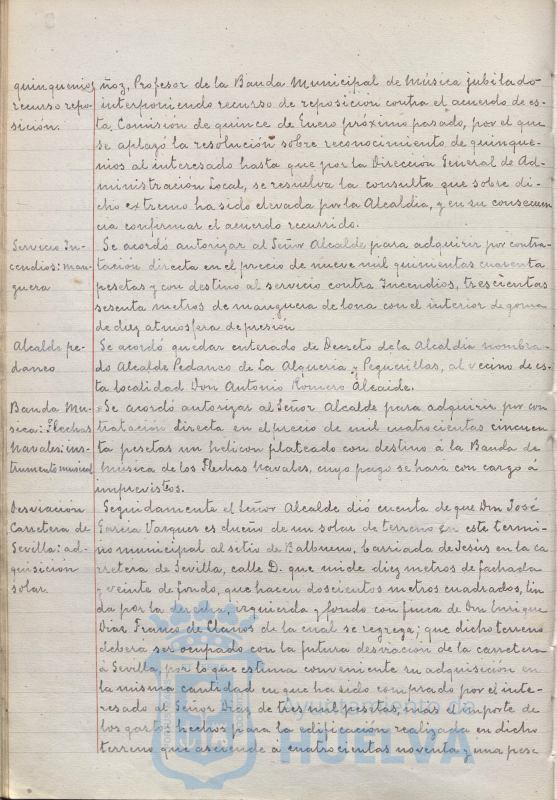 quinquenios
recurso repo-
sición.
ñoz, Profesor de la Banda Municipal de Música jubilado
interponiendo recurso de reposición contra el acuerdo de es-
ta Comisión de quince de Enero próximo pasado, por el que
se aplazó la resolución sobre reconocimiento de quinque-
nios al interesado hasta que por la Dirección General de Ad-
ministración Local, se resuelva la consulta que sobre di-
cho extremo ha sido elevada por la Alcaldia, y en su consecuen
cia confirmar el acuerdo recurrido.
Servicio In-
cendios: man-
guera
Se acordó autorizar al Señor Alcalde para adquirir por contra-
tación directa en el precio de nueve mil quinientas cuarenta
pesetas y con destino al servicio contra Incendios, trescientas
sesenta metros de manguera de lona con el interior de goma
de diez atmosfera de presión
Alcalde pe-
daneo
Se acordó quedar enterado de Decreto de la Alcaldia nombra-
do Alcalde Pedaneo de La Alqueria y Peguerillas, al vecino de es-
ta localidad Don Antonio Romero Alcaide.
Banda Mu-
sica: Flechas
Navales: ins-
trumento musical
Se acordó autorizar al Señor Alcalde para adquirir por con
tratación directa en el precio de mil cuatrocientas cincuen
ta pesetas un helicon plateado con destino á la Banda de
Música de los Flechas Navales, cuyo pago se hará con cargo á
imprevistos.
Desviación
Carretera de
Sevilla: ad-
quisición
solar.
Seguidamente el Señor Alcalde dió cuenta de que Don José
Garcia Vazquez es dueño de un solar de terreno en este termi-
no municipal al sitio de Balbueno, barriada de Jesus en la ca
rretera de Sevilla, calle D. que mide diez metros de fachada
y veinte de fondo, que hacen doscientos metros cuadrados, lin
da por la derecha, izquierda y fondo con finca de Don Enrique
Diaz Franco de Llanos de la cual se segrega; que dicho terreno
deberá ser ocupado con la futura desviación de la carretera
á Sevilla, por lo que estima conveniente su adquisición en
la misma cantidad en que ha sido comprado por el inte-
resado al Señor Diaz de tres mil pesetas, mas el importe de
los gastos hechos para la edificación realizada en dicho
terreno que asciende á cuatrocientas noventa y una pese
Ayuntamiento de
HUELVA